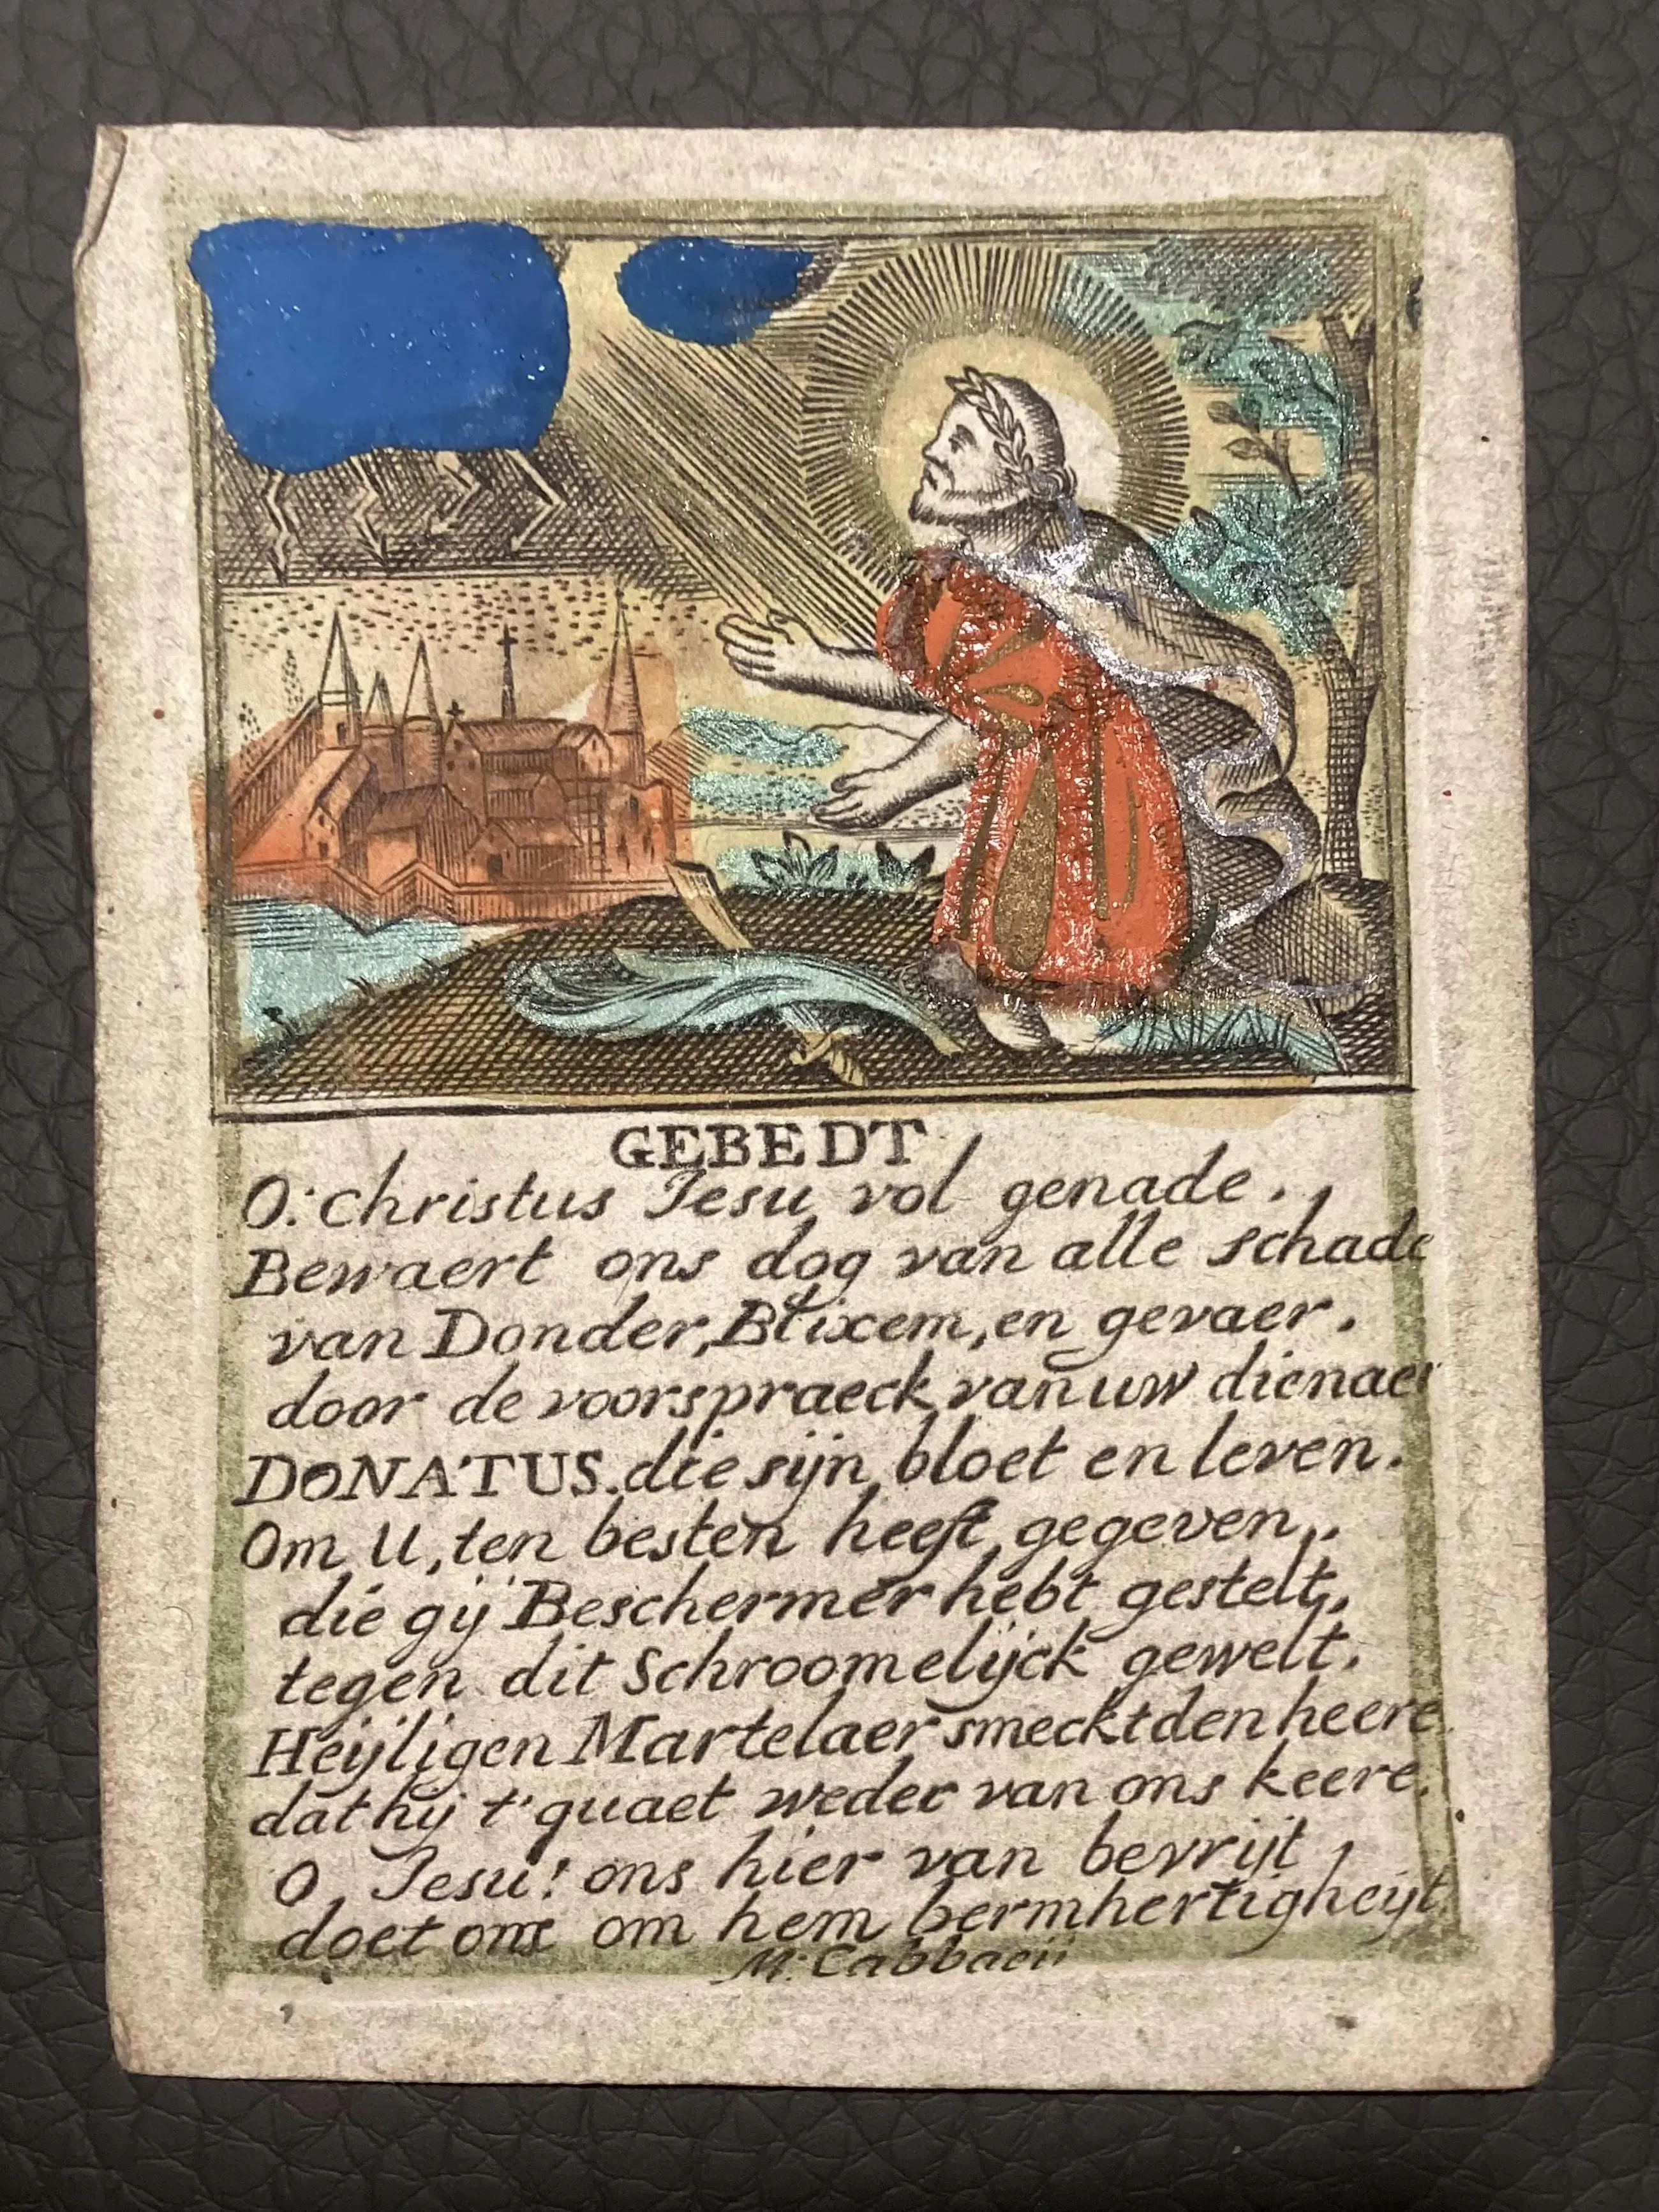 GEBEDT
O: Christus Jesu vol genade.
Bewaert ons dog van alle schade
van Donder, Blixem, en gevaer.
door de voorspraeck van uw dienaer
DONATUS. die sijn bloet en leven.
Om U, ten besten heeft gegeven,.
die gij Beschermer hebt gestelt,
tegen dit Schroomelijck gewelt.
Heijligen Martelaer smeckt den heere
dat hij t'quaet weder van ons keere.
O, Jesu! ons hier van bevrijt,
doet ons om hem bermhertigheijt.
M: Cabbaeii